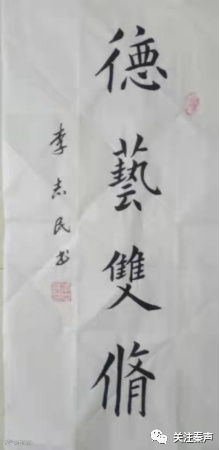 德藝雙脩
李志民书
关注秦声